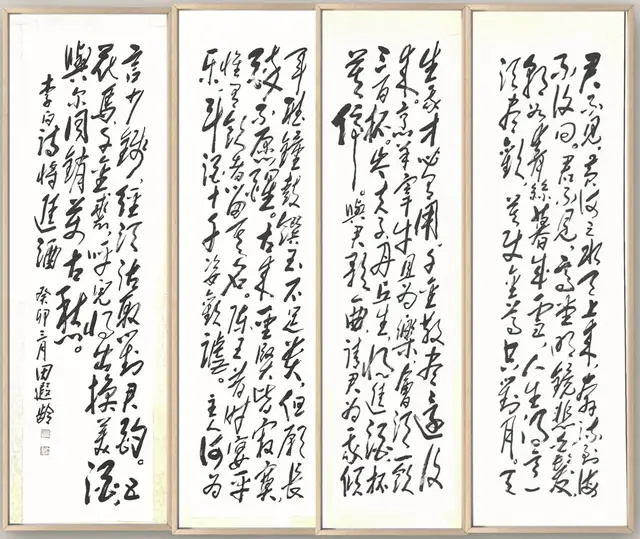 君不見黃河之水天上來奔流到海
不復回。君不見高堂明鏡悲白髮
朝如青絲暮成雪。人生得意
須盡歡莫使金尊空對月。天
生我才必有用千金散盡還復
來。烹羊宰牛且為樂會須一飲
三百杯。岑夫子丹丘生將進酒杯
莫停。與君歌一曲請君為我傾
耳聽鐘鼓饌玉不足貴但願長
醉不願醒。古來聖賢皆寂寞
惟有飲者留其名。陳王昔時宴平
樂斗酒十千恣歡謔。主人何為
言少錢徑須沽取對君酌。五
花馬千金裘呼兒將出換美酒
與爾同銷萬古愁。
李白詩將進酒 癸卯三月田遐齡